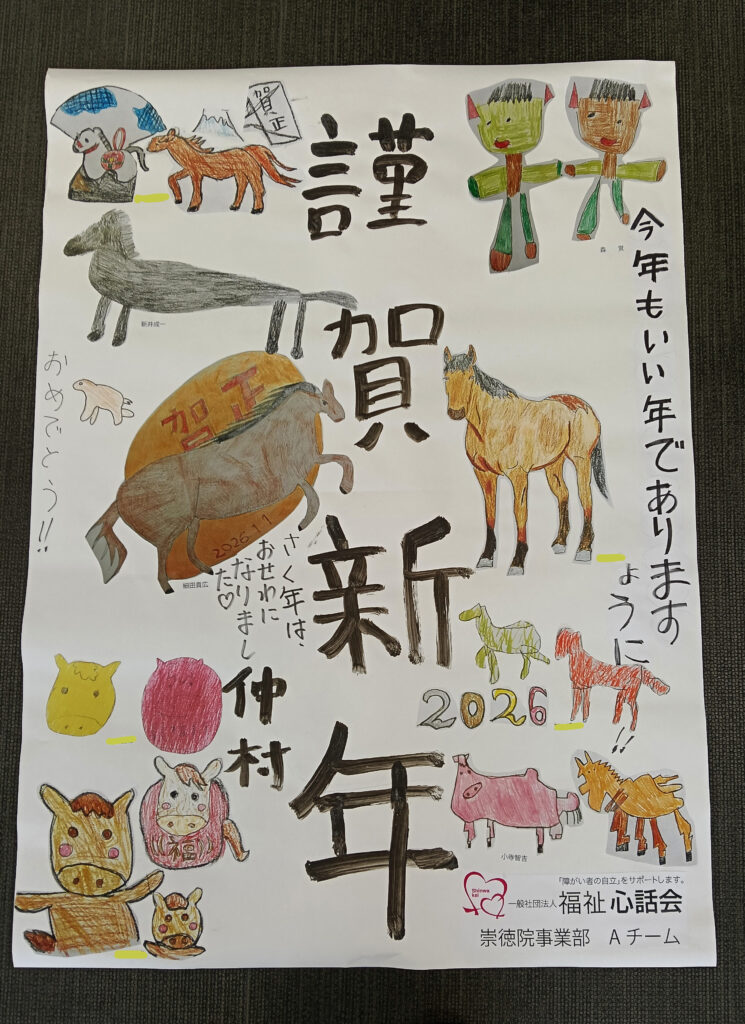 謹賀新年
賀正
今年もいい年であります
ように!!
新井成一
おめでとう!!
賀正
2026.1.1
さく年は、
おせわに
なりまし
た♡
仲村
細田貴広
2026
福
小寺智吉
Shinwa
kai
「障がい者の自立」をサポートします。
一般社団法人 福祉 心話会
崇徳院事業部 Aチーム